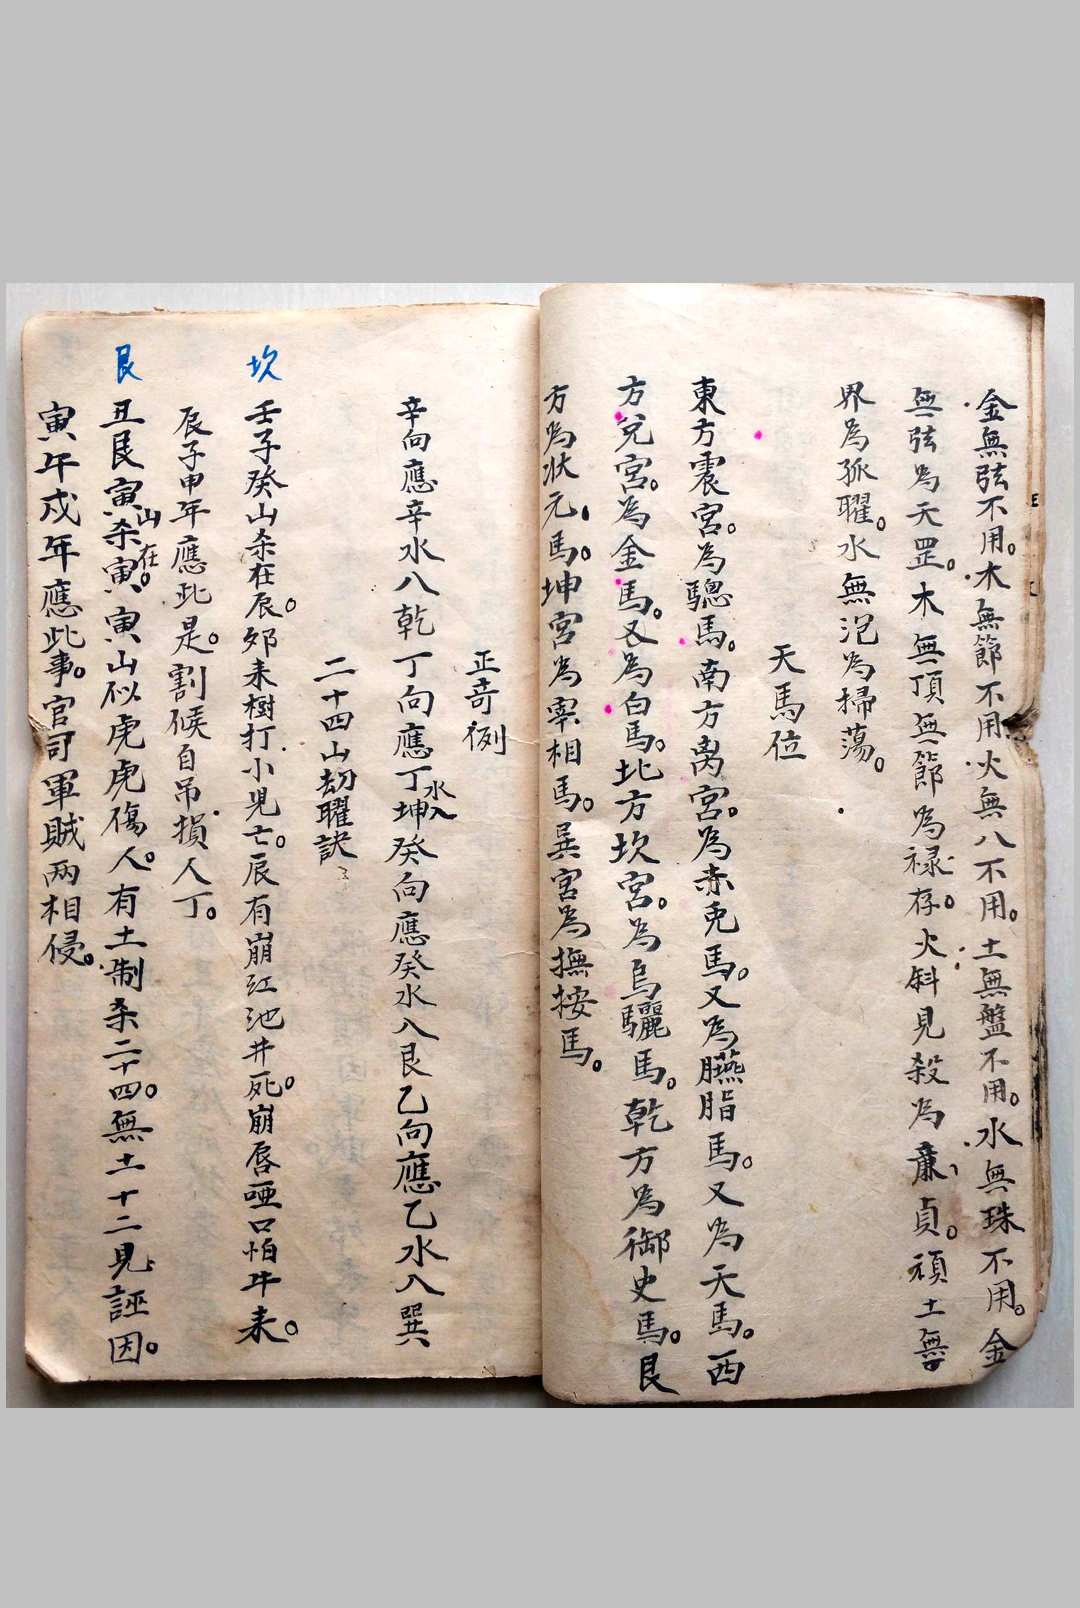 金無弦不用。木無節不用。火無八不用。土無盤不用。水無珠不用。金
無弦為天罡。木無頂無節為祿存。火斜見殺為廉貞。頑土無
界為孤曜。水無泡為掃蕩。
天馬位
東方震宮。為驄馬。南方离宮。為赤兎馬。又為臙脂馬。又為天馬。西
方兌宮。為金馬。又為白馬。北方坎宮。為烏驪馬。乾方為御史馬。艮
方為狀元馬。坤宮為宰相馬。巽宮為撫按馬。
正奇例
辛向應辛水八乾丁向應丁水入坤癸向應癸水八艮乙向應乙水入巽
二十四山刼曜訣
坎
壬子癸山杀在辰。郊来樹打小児亡。辰有崩江池井死。崩唇啞口怕牛来。
辰子申年應此是。割候自吊損人丁。
艮
丑艮寅山杀在寅。寅山似虎虎傷人。有土制杀二十四。無土十二見誣因。
寅午戍年應此事。官司軍賊两相侵。